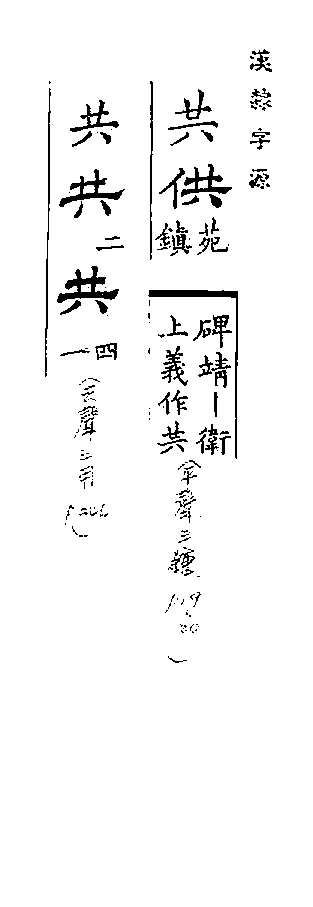 漢隸字源
共供
苑
鎮
碑靖丨衛
上義作共
(平聲三鍾
)
共共
二
共
四
一
(去聲三用
)